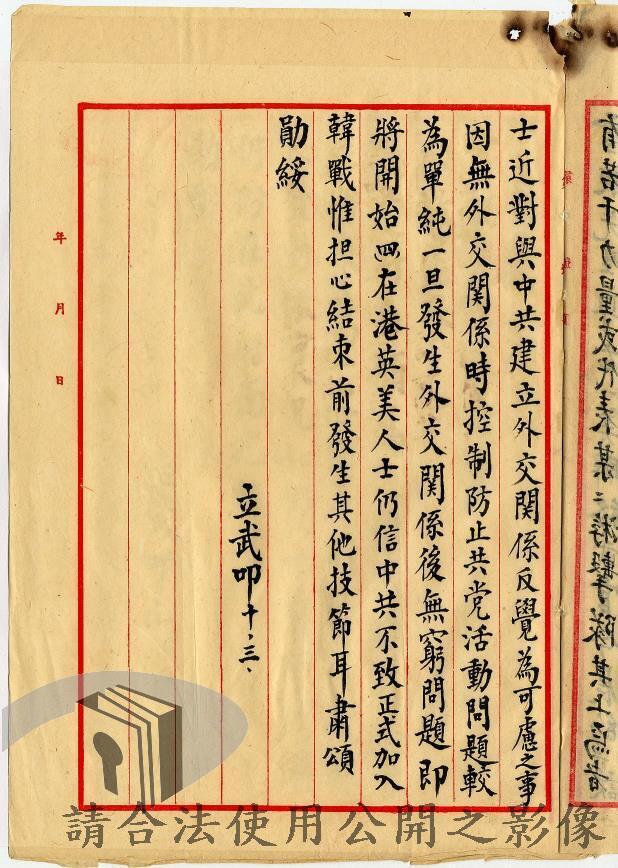 士近對與中共建立外交関係反覺為可慮之事
因無外交関係時控制防止共党活動問題較
為單純一旦發生外交関係後無窮問題即
將開始四在港英美人士仍信中共不致正式加入
韓戰惟担心結束前發生其他技節耳肅頌
勛綏
立武叩十、三、
年月日
請合法使用公開之影像